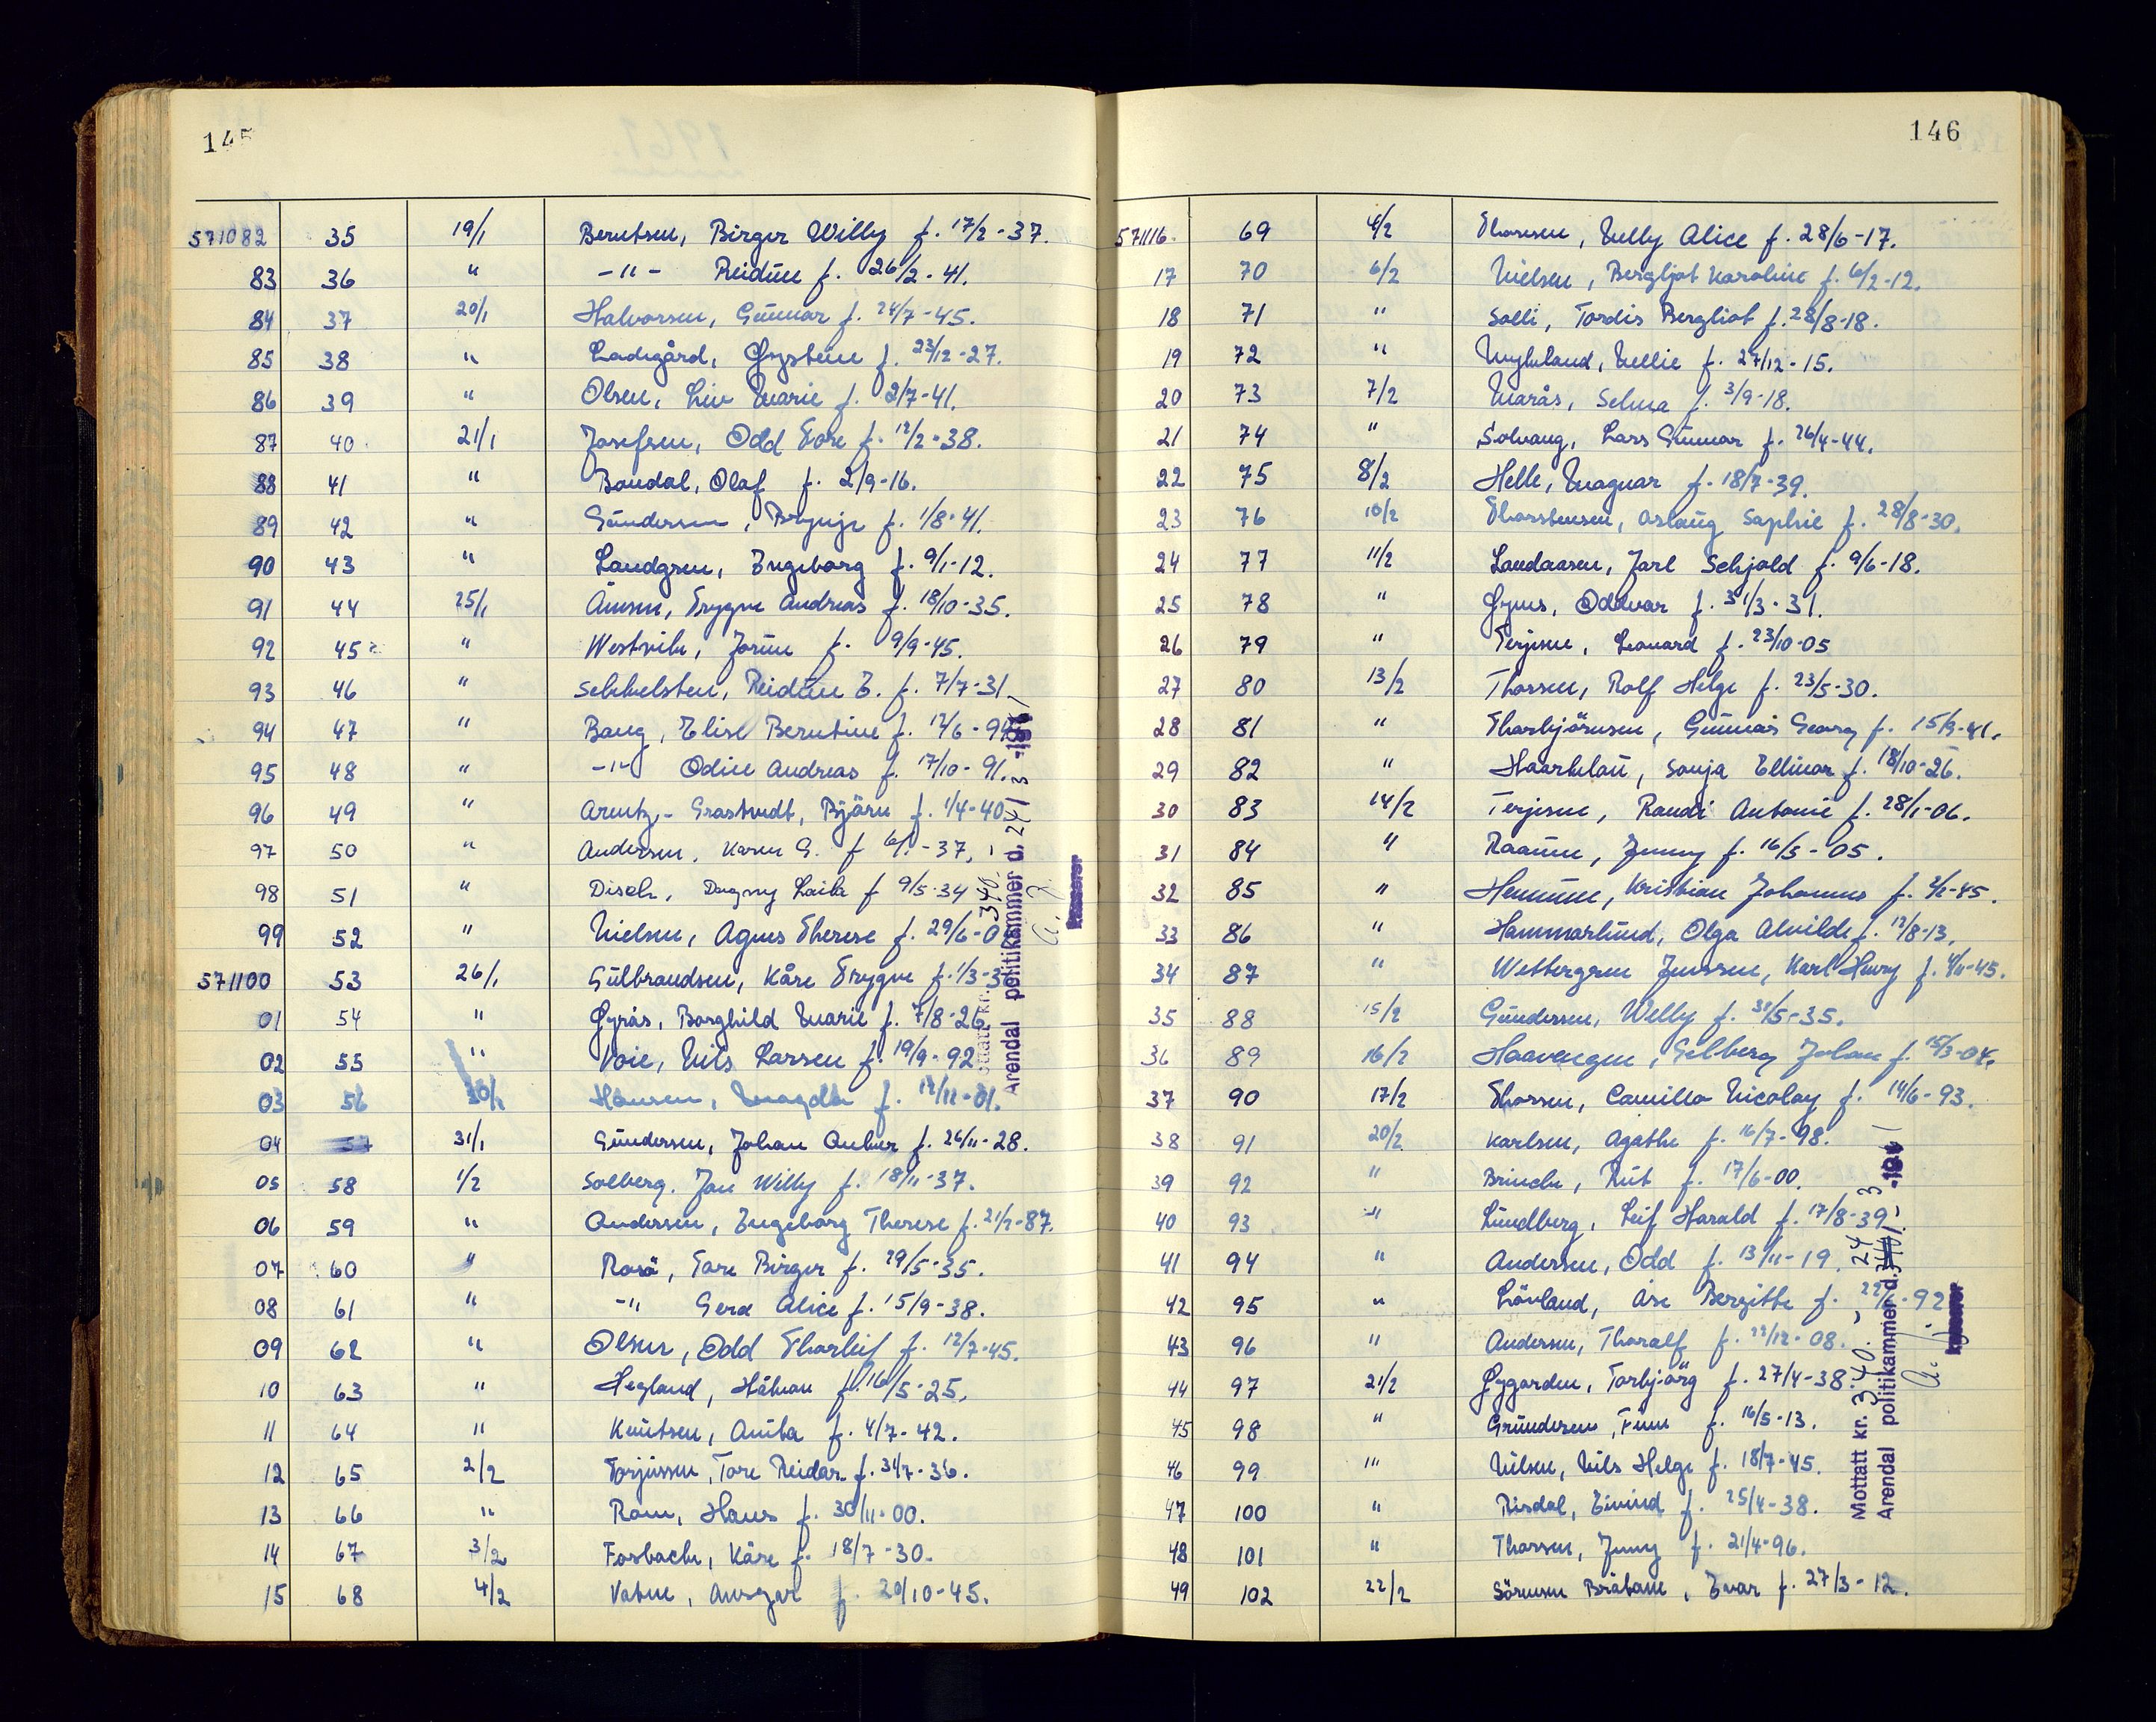 145
571082 35 19/1 Berntsen, Birger Willy f. 17/2-37.
83 36 " -"- Reidun f. 26/2-41.
84 37 20/1 Halvorsen, Gunnar f. 24/7-45.
85 38 " Ladegård, Øystein f. 23/12-27.
86 39 " Olsen, Liv Marie f. 2/7-41.
87 40 21/1 Josefsen, Odd Tore f. 12/2-38.
88 41 " Boudal, Olaf f. 2/9-16.
89 42 " Gundersen, Brynje f. 1/8-41.
90 43 " Landgren, Ingeborg f. 9/1-12.
91 44 25/1 Trygve Andreas f. 18/10-35.
92 45 " Westvik, Jorun f. 9/9-45.
93 46 " Reidun E. f. 7/7-31
94 47 " Baug, Elise Berntine f. 12/6-94
95 48 " -"- Odin Andreas f. 17/10-91.
96 49 " Arentz-Grastvedt, Bjørn f. 1/4-40
97 50 " Andersen, Karen G. f -37.
98 51 " Disch, Dagny Laila f 9/5-34
99 52 " Nielsen, Agnes Therese f. 29/6-0
571100 53 26/1 Gulbrandsen, Kåre Trygve f. 1/3-3
01 54 " Gyrås, Borghild Marie f. 7/8-26
02 55 " Voie, Nils Larsen f. 19/9-92
03 56 30/1 Hansen, Magda f. 12/12-01.
04 57 31/1 Gundersen, Johan f. 26/11-28.
05 58 1/2 Solberg, Jan Willy f. 18/11-37.
06 59 " Andersen, Ingeborg Therese f. 21/2-87.
07 60 " Roså, Tore Birger f. 29/5-35.
08 61 " -"- Gerd Alice f. 15/9-38.
09 62 " Olsen, Odd Thorleif f. 12/7-45.
10 63 " Hegland, Håkon f. 16/5-25.
11 64 " Knutsen, Anita f. 4/7-42.
12 65 2/2 Torjussen, Tore Reidar f. 31/7-36.
13 66 " Rom, Hans f. 30/11-00.
14 67 3/2 Fosbach, Kåre f. 18/7-30.
15 68 4/2 Vatne, Ansgar f. 20/10-45.
340.
Arendal politikammer d. 24/3-1961
kasserer
146
571116 69 4/2 Thorsen, Nelly Alice f. 28/6-17.
17 70 6/2 Nielsen, Bergljot Karoline f. 6/2-12.
18 71 " Solli, Tordis Bergliot f. 28/8-18.
19 72 " Nylland, Nellie f. 27/12-15.
20 73 7/2 Marås, Selma f. 3/9-18.
21 74 " Solvang, Lars Gunnar f. 26/4-44.
22 75 8/2 Helle, Magnar f. 18/7-39.
23 76 10/2 Thorstensen, Aslaug Sophie f. 28/8-30.
24 77 11/2 Landaasen, Jarl Schjold f. 9/6-18.
25 78 " Oddvar f. 31/3-31.
26 79 " Terjesen, Leonard f. 23/10-05
27 80 13/2 Thorsen, Rolf Helge f. 23/5-30.
28 81 " Thorbjörnsen, Gunnar Georg f. 15/9-41.
29 82 " Haarklau, Sonja Ellinor f. 18/10-26.
30 83 14/2 Terjesen, Randi Antonie f. 28/1-06.
31 84 " Raaum, Jenny f. 16/5-05.
32 85 " Kristian Johannes f. 2/2-45.
33 86 " Hammarlund, Olga Alvilde f. 12/8-13.
34 87 " Wettergren Jenssen, Karl Henry f. 4/11-45.
35 88 15/2 Gundersen, Willy f. 31/5-35.
36 89 16/2 Haavengen, Johan f. 15/3-04.
37 90 17/2 Thorsen, Camilla Nicolay f. 14/6-93.
38 91 20/2 Karlsen, Agathe f. 16/7-98.
39 92 " Brinch, Rut f. 17/6-00.
40 93 " Lundberg, Leif Harald f. 17/8-39
41 94 " Andersen, Odd f. 13/11-19.
42 95 " Lövland, Åse Bergitte f. 22/ -92
43 96 " Andersen, Thoralf f. 22/12-08.
44 97 21/2 Øygarden, Torbjörg f. 27/4-38
45 98 " Gundersen, Finn f. 16/5-13.
46 99 " Nilsen, Nils Helge f. 18/7-45.
47 100 " Risdal, Eivind f. 25/4-38.
48 101 " Thorsen, Jenny f. 21/4-96.
49 102 22/2 Sörensen Bråtane, Ivar f. 27/3-12.
Mottatt kr. 340.-
Arendal politikammer d. 24/3-1961
kasserer